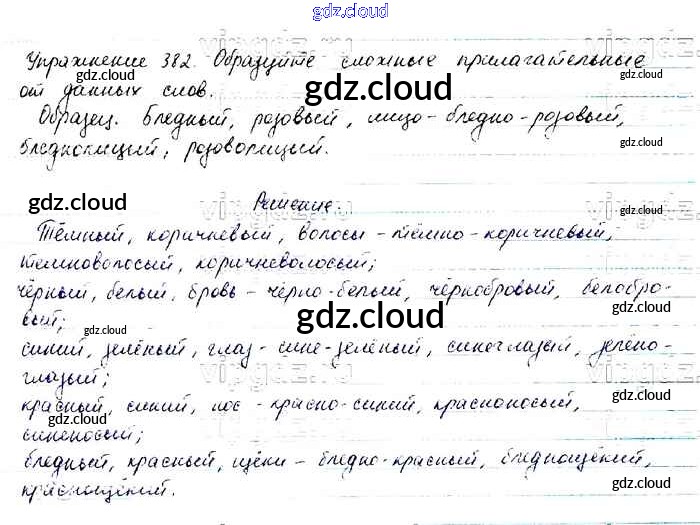 gdz.cloud
Упражнение 382. Образуйте сложные прилагательные
gdz.cloud
gdz.cloud
gdz.cloud
от данных слов.
Образец. Бледный, розовый, лицо - бледно-розовый,
бледнолицый, розоволицый.
gdz.cloud
gdz.cloud
Решение.
gdz.cloud
Тёмный, коричневый, волосы - тёмно-коричневый,
темноволосый, коричневолосый;
чёрный, белый, бровь - чёрно-белый, чернобровый, белобро-
вый;
gdz.cloud
gdz.cloud
синий, зелёный, глаз - сине-зелёный, синеглазый, зелено-
глазый;
gdz.cloud
красный, синий, нос - красно-синий, красноносый,
синеносый;
gdz.cloud
бледный, красный, щёки - бледно-красный, бледнощёкий,
краснощёкий.
gdz.cloud
gdz.cloud